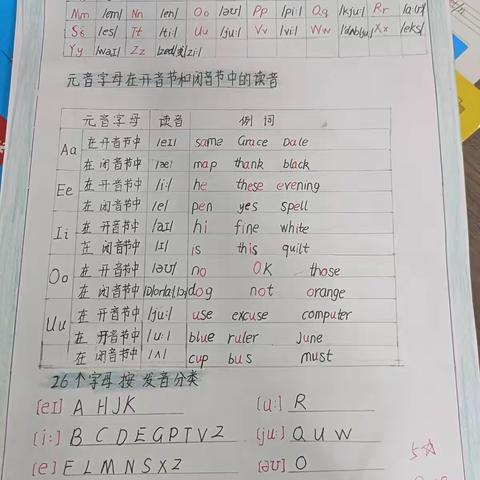 Mm /em/ Nn /en/ Oo /əʊ/ Pp /piː/ Qq /kjuː/ Rr /ɑː(r)/
Ss /es/ Tt /tiː/ Uu /juː/ Vv /viː/ Ww /ˈdʌbljuː/ Xx /eks/
Yy /waɪ/ Zz /zed/或/ziː/
元音字母在开音节和闭音节中的读音
元音字母 读音 例词
Aa 在开音节中 /eɪ/ same Grace Dale
在闭音节中 /æ/ map thank black
Ee 在开音节中 /iː/ he these evening
在闭音节中 /e/ pen yes spell
Ii 在开音节中 /aɪ/ hi fine white
在闭音节中 /ɪ/ is this quilt
Oo 在开音节中 /əʊ/ no OK those
在闭音节中 dog not orange
Uu 在开音节中 /juː/ use excuse computer
在开音节中 /uː/ blue ruler June
在闭音节中 /ʌ/ cup bus must
26个字母按发音分类
[eɪ] A H J K [ɑː] R
[iː] B C D E G P T V Z [juː] Q U W
[e] F L M N S X Z [əʊ] O
5☆